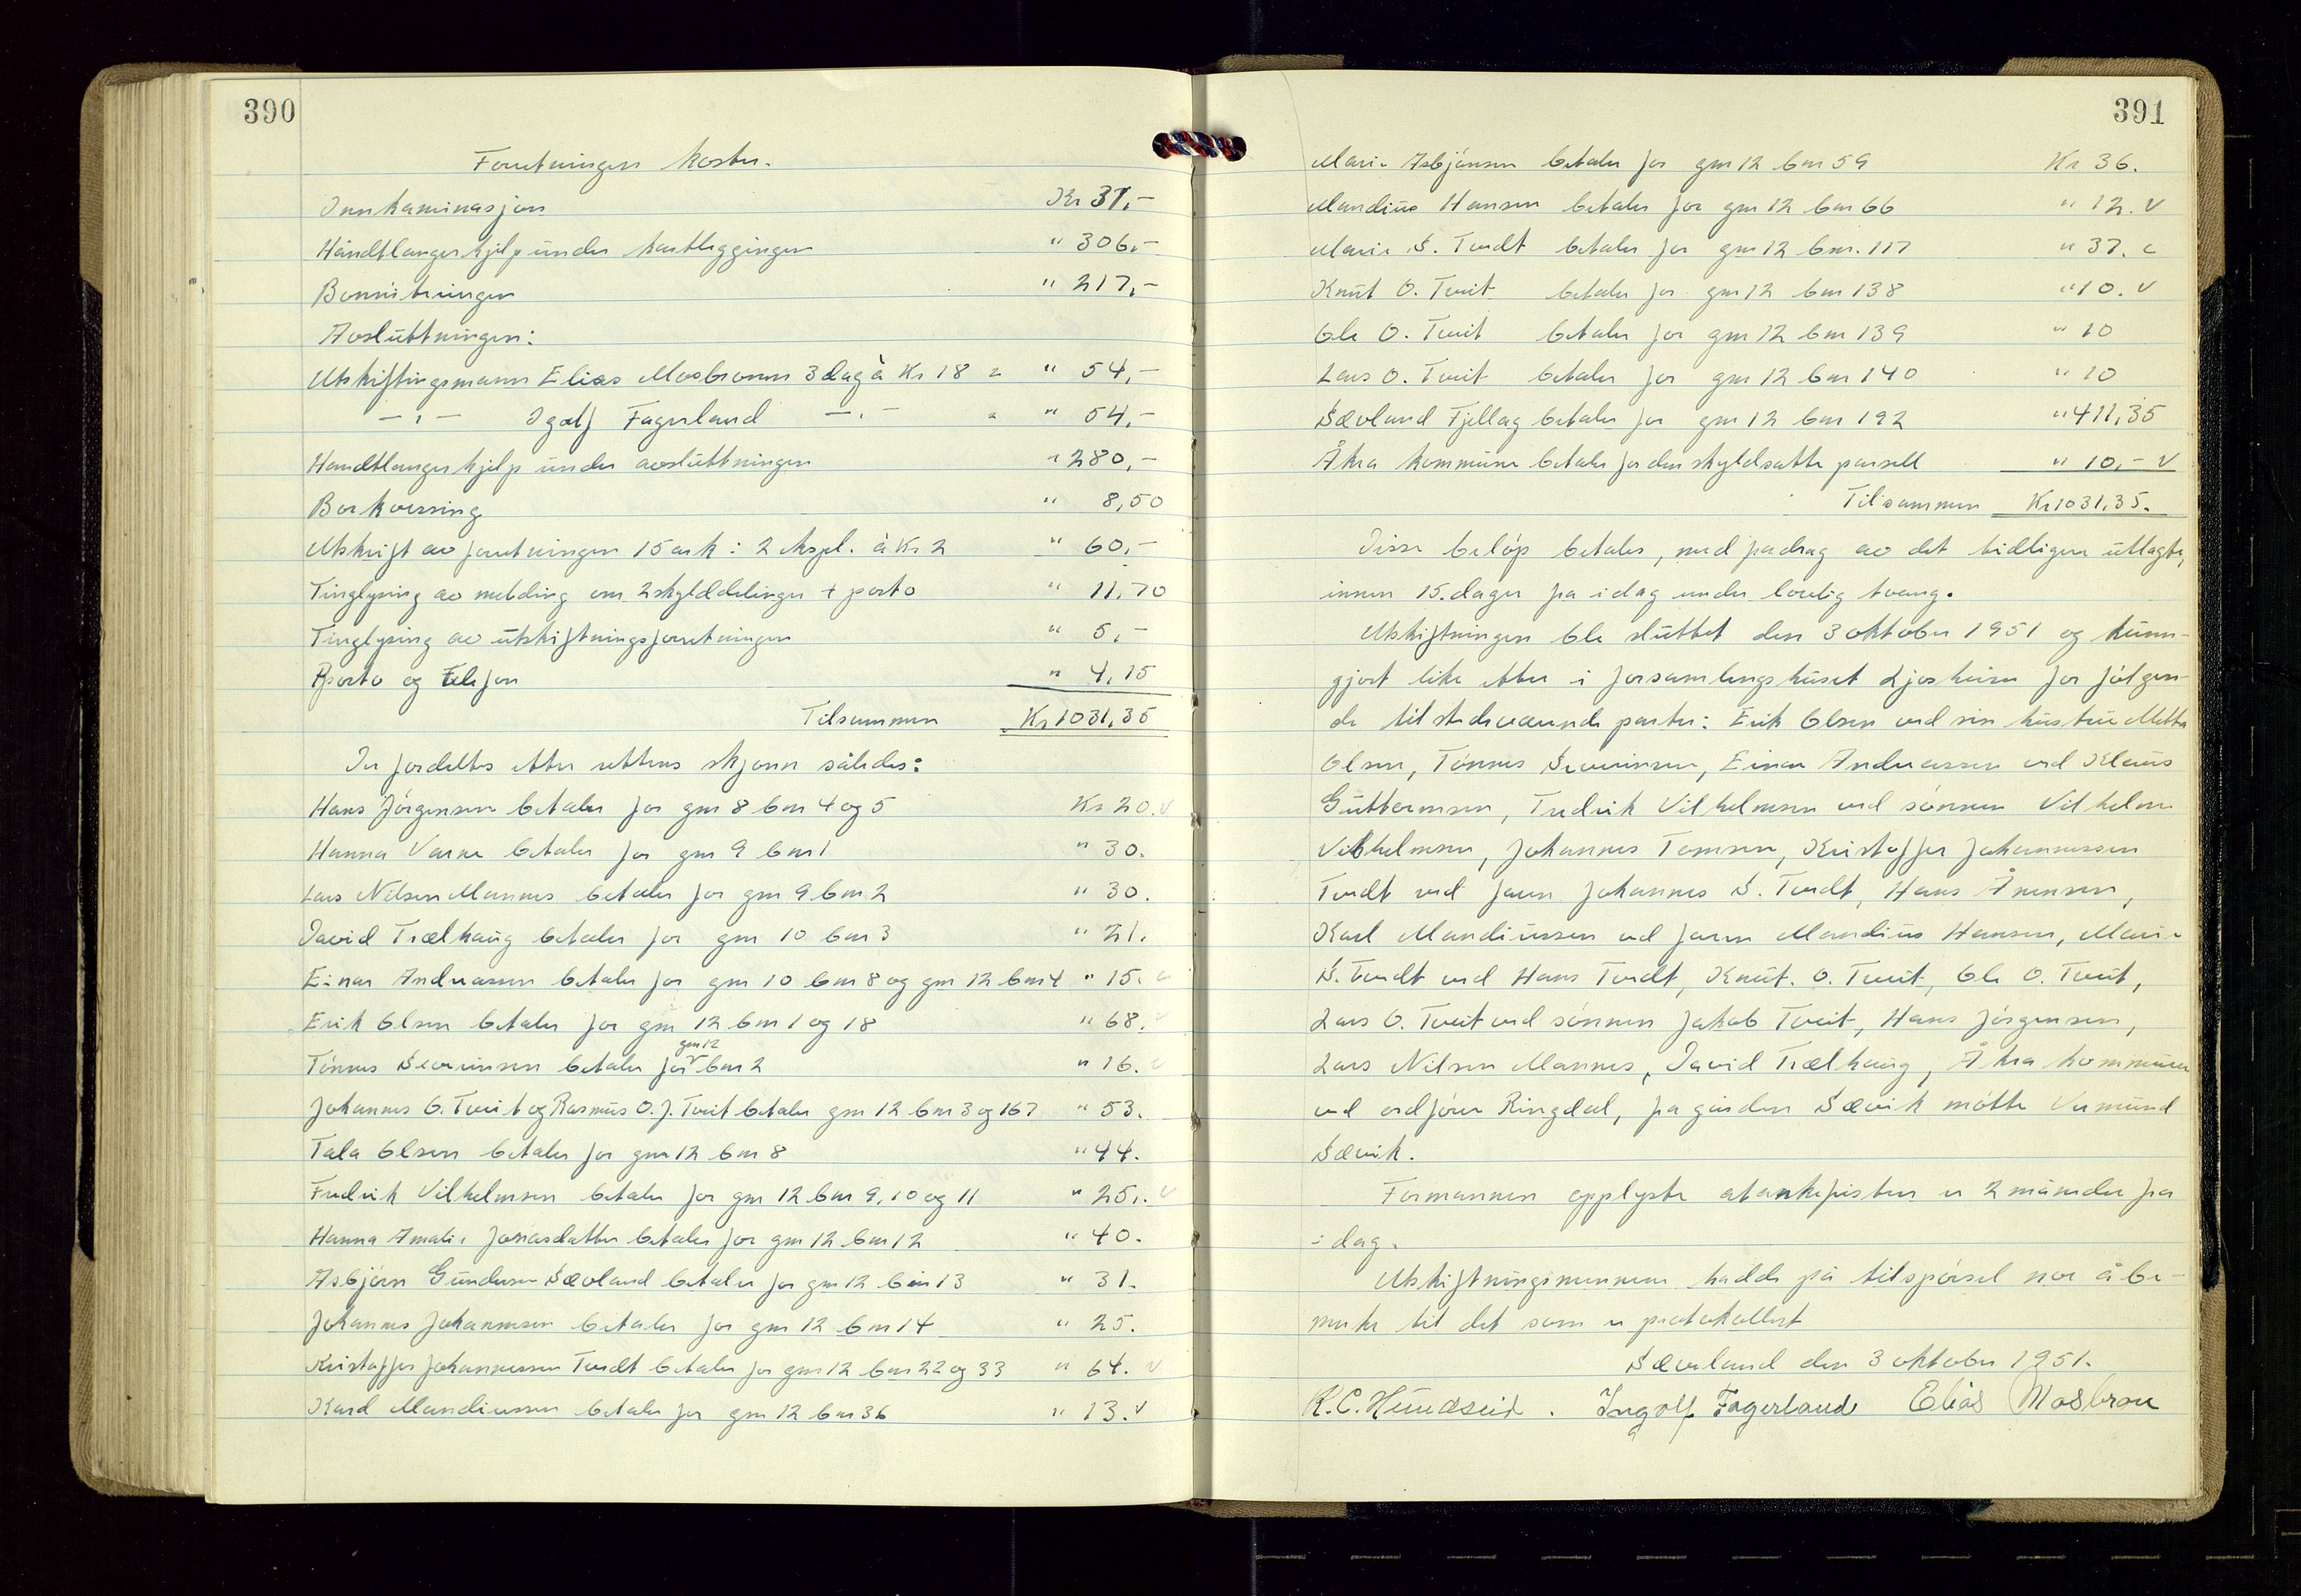 390
Forretningen koster.
Innkaminasjon Kr 31,-
Håndtlangerhjelp under kartleggingen " 306,-
Boniteringen " 217,-
Avsluttningen:
Utskiftingsmann Elias Mosbronn 3 dag à Kr 18 = " 54,-
—"— Igolf Fagerland —"— = " 54,-
Handtlangerhjelp under avsluttningen " 280,-
Borkvessing " 8,50
Utskrift av forretningen 15 ark i 2 ekspl. à Kr 2 " 60,-
Tinglysing av melding om 2 skylddelinger + porto " 11,70
Tinglysing av utskiftningsforretningen " 5,-
Pporto og telefon " 4,15
Tilsammen Kr 1031,35
Der fordeltes etter rettens skjønn således:
Hans Jörgensen betaler for gnr 8 bnr 4 og 5 Kr 20. v
Hanna Varne betaler for gnr 9 bnr 1 " 30.
Lars Nilsen Mannes betaler for gnr 9 bnr 2 " 30.
David Trælhaug betaler for gnr 10 bnr 3 " 21.
Einar Andreassen betaler for gnr 10 bnr 8 og gnr 12 bnr 4 " 15. v
Erik Olsen betaler for gnr 12 bnr 1 og 18 " 68. v
Tönnes Severinsen betaler for gnr 12 bnr 2 " 16. v
Johannes O. Tveit og Rasmus O. J. Tveit betaler gnr 12 bnr 3 og 167 " 53.
Tala Olsen betaler for gnr 12 bnr 8 " 44.
Fredrik Vilhelmsen betaler for gnr 12 bnr 9, 10 og 11 " 25,. v
Hanna Amalie Jonasdatter betaler for gnr 12 bnr 12 " 40.
Asbjörn Gundersen Sævland betaler for gnr 12 bnr 13 " 31.
Johannes Johannesen betaler for gnr 12 bnr 14 " 25.
Kristoffer Johannessen Tvedt betaler for gnr 12 bnr 22 og 33 " 64. v
Karl Mandiussen betaler for gnr 12 bnr 36 " 13. v
391
Marie Asbjörnsen betaler for gnr 12 bnr 59 Kr 36.
Mandius Hansen betaler for gnr 12 bnr 66 " 12. v
Marie S. Tvedt betaler for gnr 12 bnr. 117 " 37. v
Knut O. Tveit betaler for gnr 12 bnr 138 " 10. v
Ole O. Tveit betaler for gnr 12 bnr 139 " 10
Lars O. Tveit betaler for gnr 12 bnr 140 " 10
Sævland Fjellag betaler for gnr 12 bnr 192 " 411,35
Åkra kommune betaler for den skyldsatte parsell " 10,- v
Tilsammen Kr 1031,35.
Disse beløp betales, med fradrag av det tidligere utlagte,
innen 15. dager fra idag under lovlig tvang.
Utskiftningen ble sluttet den 3 oktober 1951 og kunn-
gjort like etter i forsamlingshuset Ljosheim for følgen-
de tilstedeværende parter: Erik Olsen ved sin hustru Metta
Olsen, Tönnes Severinsen, Einar Andreassen ved Klaus
Guttormsen, Fredrik Vilhelmsen ved sönnen Vilhelm
Vilhelmsen, Johannes Tomsen, Kristoffer Johannessen
Tvedt ved faren Johannes S. Tvedt, Hans Ånensen,
Karl Mandiussen ved faren Mandius Hansen, Marie
S. Tvedt ved Hans Tvedt, Knut. O. Tveit, Ole O. Tveit,
Lars O. Tveit ved sönnen Jakob Tveit, Hans Jörgensen,
Lars Nilsen Mannes, David Trælhaug, Åkra kommune
ved ordfører Ringdal, fra gården Sævik mötte Vermund
Sævik.
Formannen opplyste at ankefristen er 2 måneder fra
i dag.
Utskiftningsmennene hadde på tilspørsel noe å be-
merke til det som er protokollert
Sævland den 3 oktober 1951.
K.C. Hundseid. Ingolf Fagerland Elias Mosbron